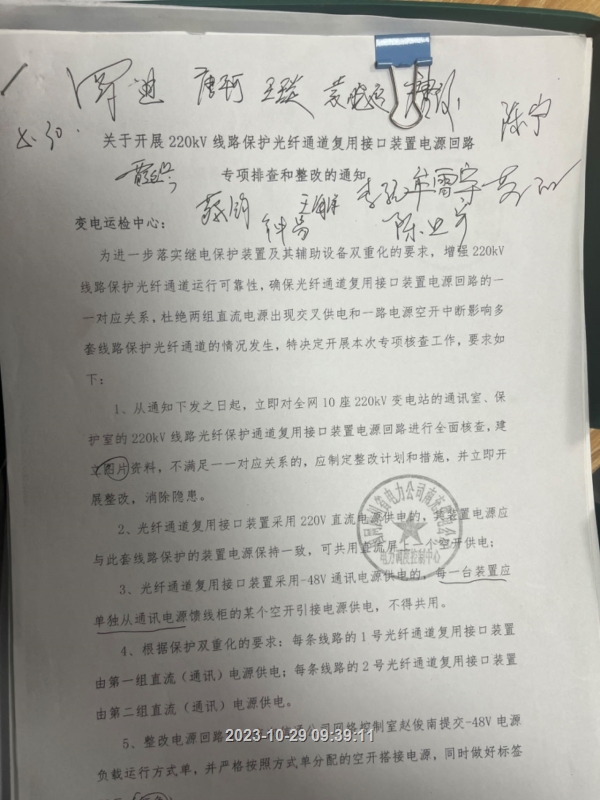 罗迪 唐珂 王琰 袁晓 陈宁
8.30.
关于开展220kV线路保护光纤通道复用接口装置电源回路
专项排查和整改的通知
牟雷宇
变电运检中心：
为进一步落实继电保护装置及其辅助设备双重化的要求，增强220kV
线路保护光纤通道运行可靠性，确保光纤通道复用接口装置电源回路的一
一对应关系，杜绝两组直流电源出现交叉供电和一路电源空开中断影响多
套线路保护光纤通道的情况发生，特决定开展本次专项核查工作，要求如
下：
1、从通知下发之日起，立即对全网10座220kV变电站的通讯室、保
护室的220kV线路光纤保护通道复用接口装置电源回路进行全面核查，建
立图片资料，不满足一一对应关系的，应制定整改计划和措施，并立即开
展整改，消除隐患。
2、光纤通道复用接口装置采用220V直流电源供电的，其装置电源应
与此套线路保护的装置电源保持一致，可共用直流屏上一个空开供电；
电力调度控制中心
3、光纤通道复用接口装置采用-48V通讯电源供电的，每一台装置应
单独从通讯电源馈线柜的某个空开引接电源供电，不得共用。
4、根据保护双重化的要求：每条线路的1号光纤通道复用接口装置
由第一组直流（通讯）电源供电；每条线路的2号光纤通道复用接口装置
由第二组直流（通讯）电源供电。
5、整改电源回路 公司网络控制室赵俊南提交-48V电源
2023-10-29 09:39:11
负载运行方式单，并严格按照方式单分配的空开搭接电源，同时做好标签